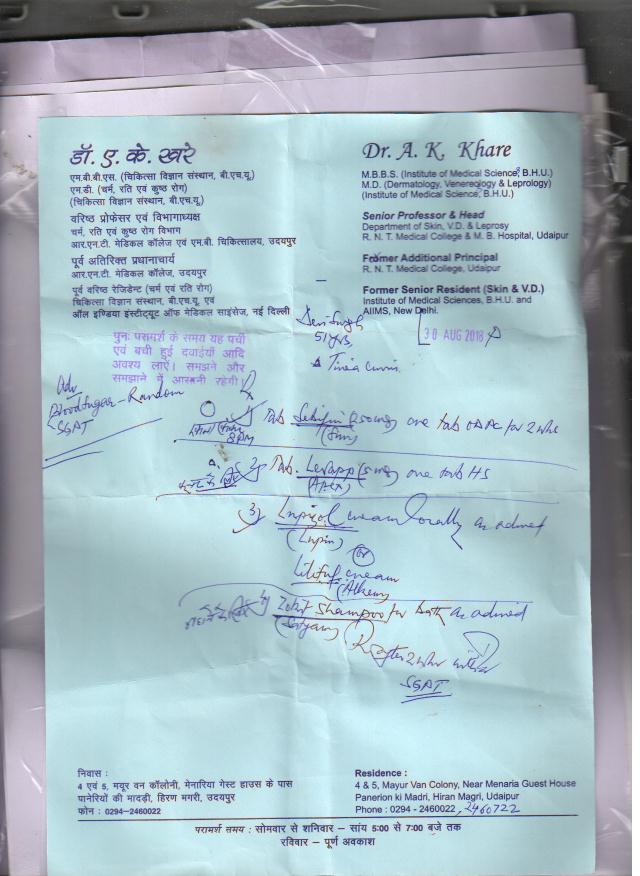 डॉ. ए. के. खरे
एम.बी.बी.एस. (चिकित्सा विज्ञान संस्थान, बी.एच.यू.)
एम.डी. (चर्म, रति एवं कुष्ठ रोग)
(चिकित्सा विज्ञान संस्थान, बी.एच.यू.)
वरिष्ठ प्रोफेसर एवं विभागाध्यक्ष
चर्म, रति एवं कुष्ठ रोग विभाग
आर.एन.टी. मेडिकल कॉलेज एवं एम.बी. चिकित्सालय, उदयपुर
पूर्व अतिरिक्त प्रधानाचार्य
आर.एन.टी. मेडिकल कॉलेज, उदयपुर
पूर्व वरिष्ठ रेजिडेन्ट (चर्म एवं रति रोग)
चिकित्सा विज्ञान संस्थान, बी.एच.यू. एवं
ऑल इण्डिया इंस्टीट्यूट ऑफ मेडिकल साइंसेज, नई दिल्ली
Dr. A. K. Khare
M.B.B.S. (Institute of Medical Science, B.H.U.)
M.D. (Dermatology, Venereology & Leprology)
(Institute of Medical Science, B.H.U.)
Senior Professor & Head
Department of Skin, V.D. & Leprosy
R. N. T. Medical College & M. B. Hospital, Udaipur
Former Additional Principal
R. N. T. Medical College, Udaipur
Former Senior Resident (Skin & V.D.)
Institute of Medical Sciences, B.H.U. and
AIIMS, New Delhi.
30 AUG 2018
51 yrs,
Tinea Cruris
पुनः परामर्श के समय यह पर्ची
एवं बची हुई दवाईयाँ आदि
अवश्य लाएं। समझने और
समझाने में आसानी रहेगी।
Adv
Blood Sugar - Random
SGPT
Tab one tab for 2 wks
8 PM
(Sun)
2) Tab. (5mg) one tab HS
(Apex)
3) cream locally as advised
(Lupin)
or
cream
(Alkem)
Shampoo for bath as advised
(Satyam)
R after 2 wks
SGPT
निवास :
4 एवं 5, मयूर वन कॉलोनी, मेनारिया गेस्ट हाउस के पास
पानेरियों की मादड़ी, हिरण मगरी, उदयपुर
फोन : 0294-2460022
Residence :
4 & 5, Mayur Van Colony, Near Menaria Guest House
Panerion ki Madri, Hiran Magri, Udaipur
Phone : 0294 - 2460022, 2460722
परामर्श समय : सोमवार से शनिवार – सांय 5:00 से 7:00 बजे तक
रविवार – पूर्ण अवकाश